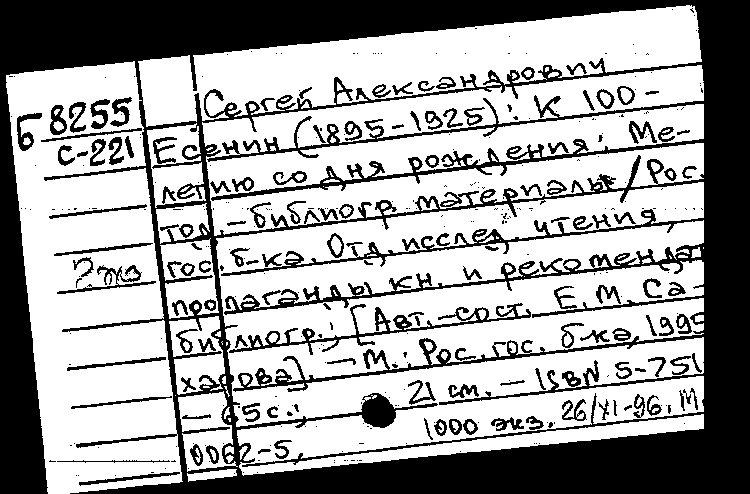 Б 8255
С-221
2 экз
Сергей Александрович
Есенин (1895-1925): К 100-
летию со дня рождения: Ме-
тод.-библиогр. материалы / Рос.
гос. б-ка. Отд. исслед. чтения,
пропаганды кн. и рекомендат
библиогр.; [Авт.-сост. Е. М. Са-
харова]. - М.: Рос. гос. б-ка, 1995
- 65 с.; 21 см. - ISBN 5-751
0062-5, 1000 экз. 26/XI-96. М.